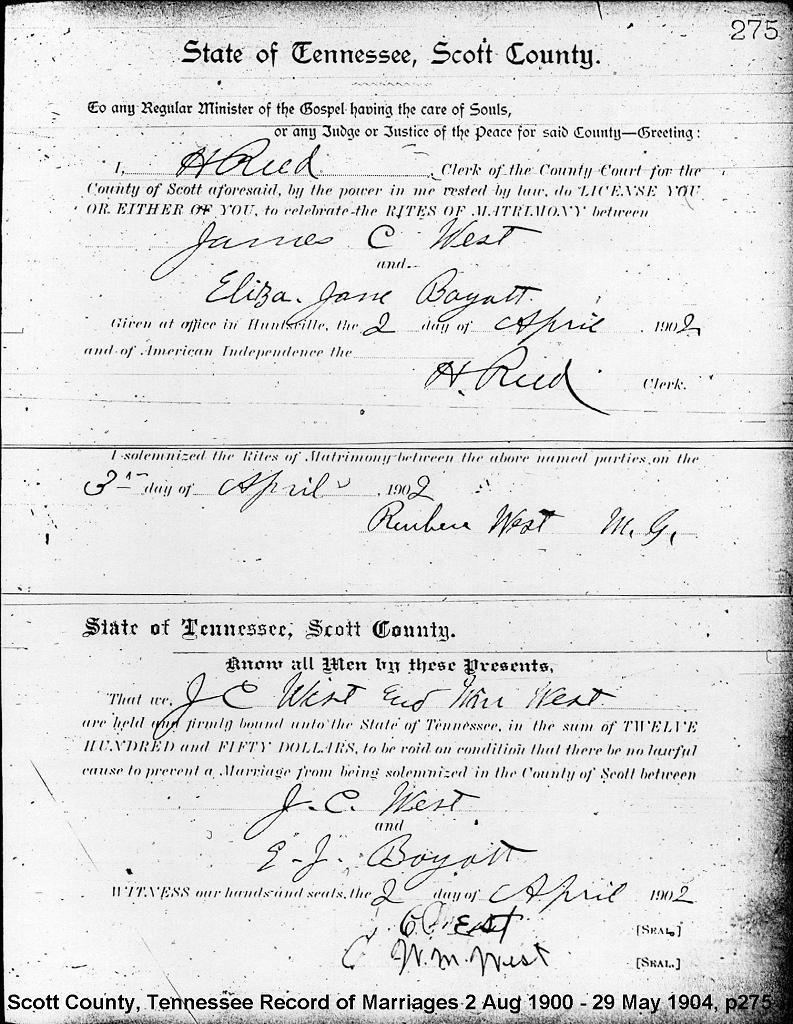 275
State of Tennessee, Scott County.
To any Regular Minister of the Gospel having the care of Souls,
or any Judge or Justice of the Peace for said County—Greeting:
I, H Reed, Clerk of the County Court for the
County of Scott aforesaid, by the power in me vested by law, do LICENSE YOU
OR EITHER OF YOU, to celebrate the RITES OF MATRIMONY between
James C West
and
Eliza Jane Boyatt
Given at office in Huntsville, the 2 day of April 1902
and of American Independence the
H. Reed Clerk.
I solemnized the Rites of Matrimony between the above named parties, on the
3 day of April, 1902
Reuben West M. G.
State of Tennessee, Scott County.
Know all Men by these Presents,
That we, J C West and Wm West
are held and firmly bound unto the State of Tennessee, in the sum of TWELVE
HUNDRED and FIFTY DOLLARS, to be void on condition that there be no lawful
cause to prevent a Marriage from being solemnized in the County of Scott between
J. C. West
and
E. J. Boyatt
WITNESS our hands and seals, the 2 day of April 1902
[SEAL.]
W. M. West [SEAL.]
Scott County, Tennessee Record of Marriages 2 Aug 1900 - 29 May 1904, p275